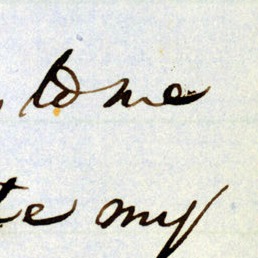 to me
te my